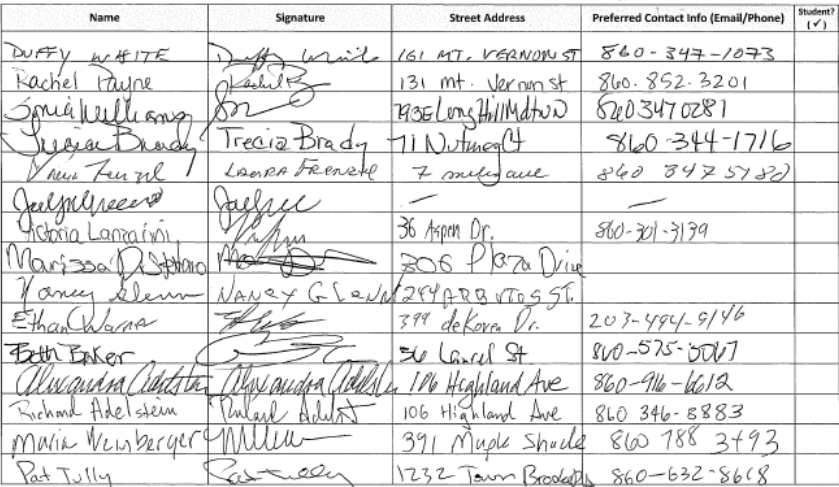 Name Signature Street Address Preferred Contact Info (Email/Phone) Student? (✓)
DUFFY WHITE Duffy White 161 MT. VERNON ST 860-347-1073
Rachel Payne 131 mt. Vernon st 860.852.3201
Sonia Williams 860 347 0281
Trecia Brady Trecia Brady 71 Nutmeg Ct 860-344-1716
LAURA FRENZEL 7 860 347 5780
— —
Victoria Lanzarini 36 Aspen Dr. 860-301-3139
Marissa DiStefano 306 Plaza Drive
Nancy Glenn NANCY GLENN 294 ARBUTUS ST.
Ethan Warner 399 deKoven Dr. 203-494-9146
Beth Baker 56 Laurel St. 860-575-5067
Alexandra Adelstein Alexandra 106 Highland Ave 860-916-6612
Richard Adelstein Richard 106 Highland Ave 860 346-8883
Maria Weinberger 391 Maple Shade 860 788 3493
Pat Tully Pat Tully 1232 Town Brooke 860-632-8618